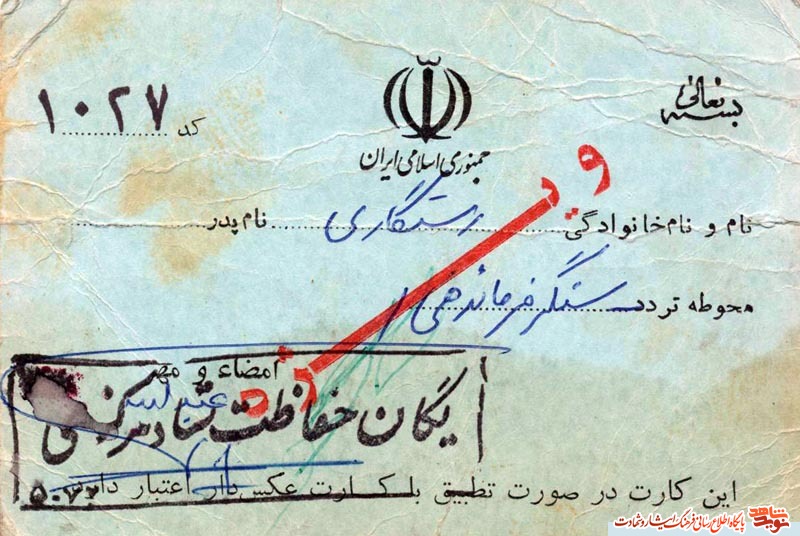 بسمه تعالی
کد ۱۰۲۷
جمهوری اسلامی ایران
نام و نام خانوادگی رستگاری نام پدر
محوطه تردد سنگر فرماندهی
امضاء و مهر
یگان حفاظت ستاد مرکزی
این کارت در صورت تطبیق با کارت عکس‌دار اعتبار دارد.
نوید شاهد
پایگاه اطلاع رسانی فرهنگ ایثار و شهادت